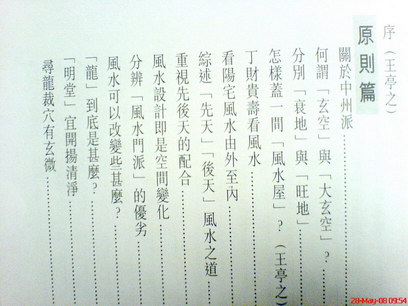 序（王亭之）
原則篇
關於中州派
何謂「玄空」與「大玄空」？
分別「衰地」與「旺地」
怎樣蓋一間「風水屋」？（王亭之）
丁財貴壽看風水
看陽宅風水由外至內
綜述「先天」「後天」風水之道
重視先後天的配合
風水設計即是空間變化
分辨「風水門派」的優劣
風水可以改變些甚麼？
「龍」到底是甚麼？
「明堂」宜開揚清淨
尋龍裁穴有玄微
28-May-08 09:54